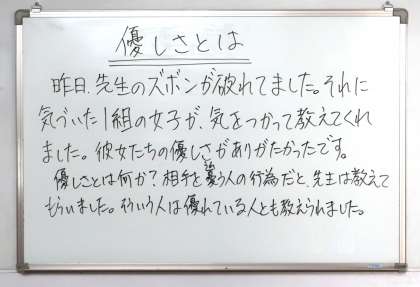 優しさとは
昨日、先生のズボンが破れてました。それに
気づいた1組の女子が、気をつかって教えてくれ
ました。彼女たちの優しさがありがたかったです。
優しさとは何か?相手を憂う人の行為だと、先生は教えて
もらいました。そういう人は優れている人とも教えられました。